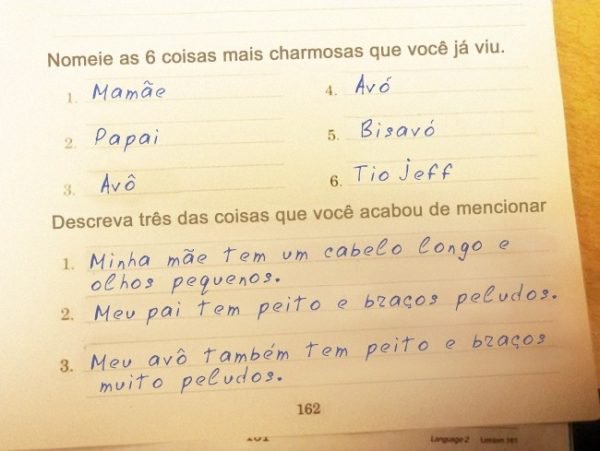 Nomeie as 6 coisas mais charmosas que você já viu.
1. Mamãe
2. Papai
3. Avô
4. Avó
5. Bisavó
6. Tio Jeff
Descreva três das coisas que você acabou de mencionar
1. Minha mãe tem um cabelo longo e
olhos pequenos.
2. Meu pai tem peito e braços peludos.
3. Meu avô também tem peito e braços
muito peludos.
162
Language 2 Lesson 161